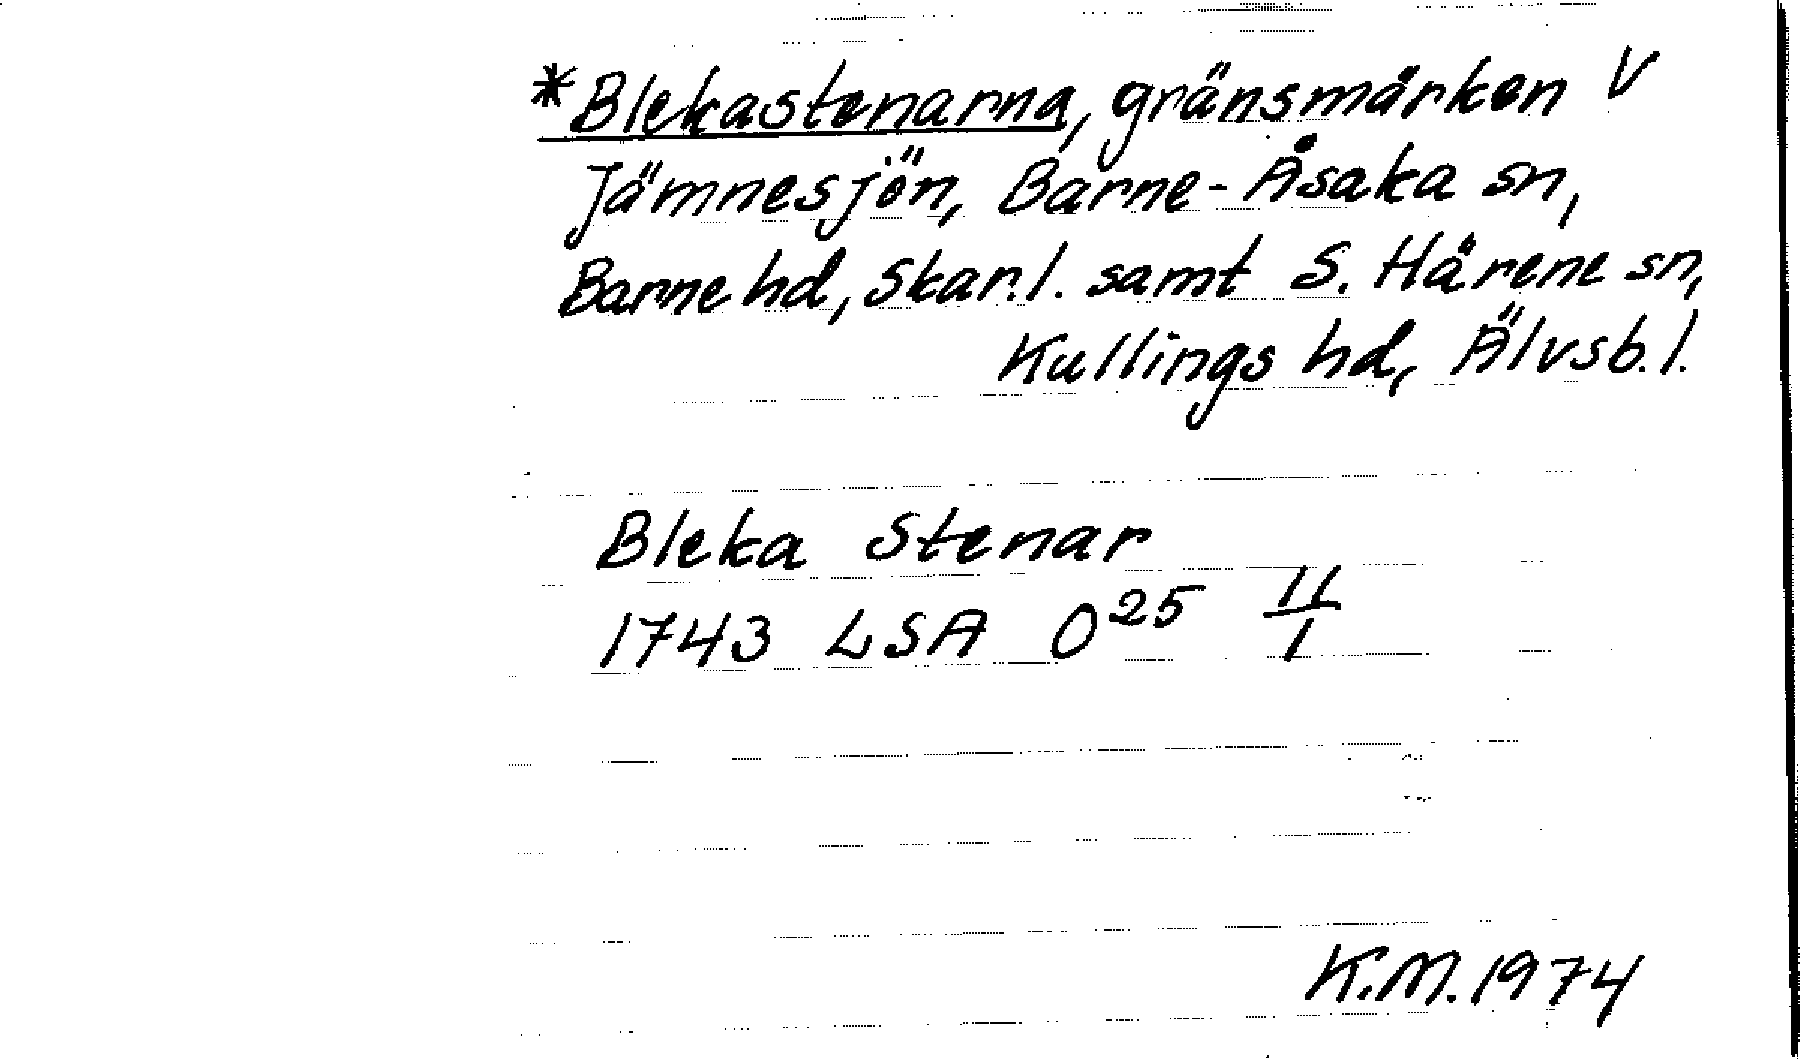 *Blekastenarna, gränsmärken V
Jämnesjön, Barne-Åsaka sn,
Barne hd, Skar.l. samt S. Härene sn,
Kullings hd, Älvsb.l.
Bleka Stenar
1743 LSA O25 11/1
K.M. 1974